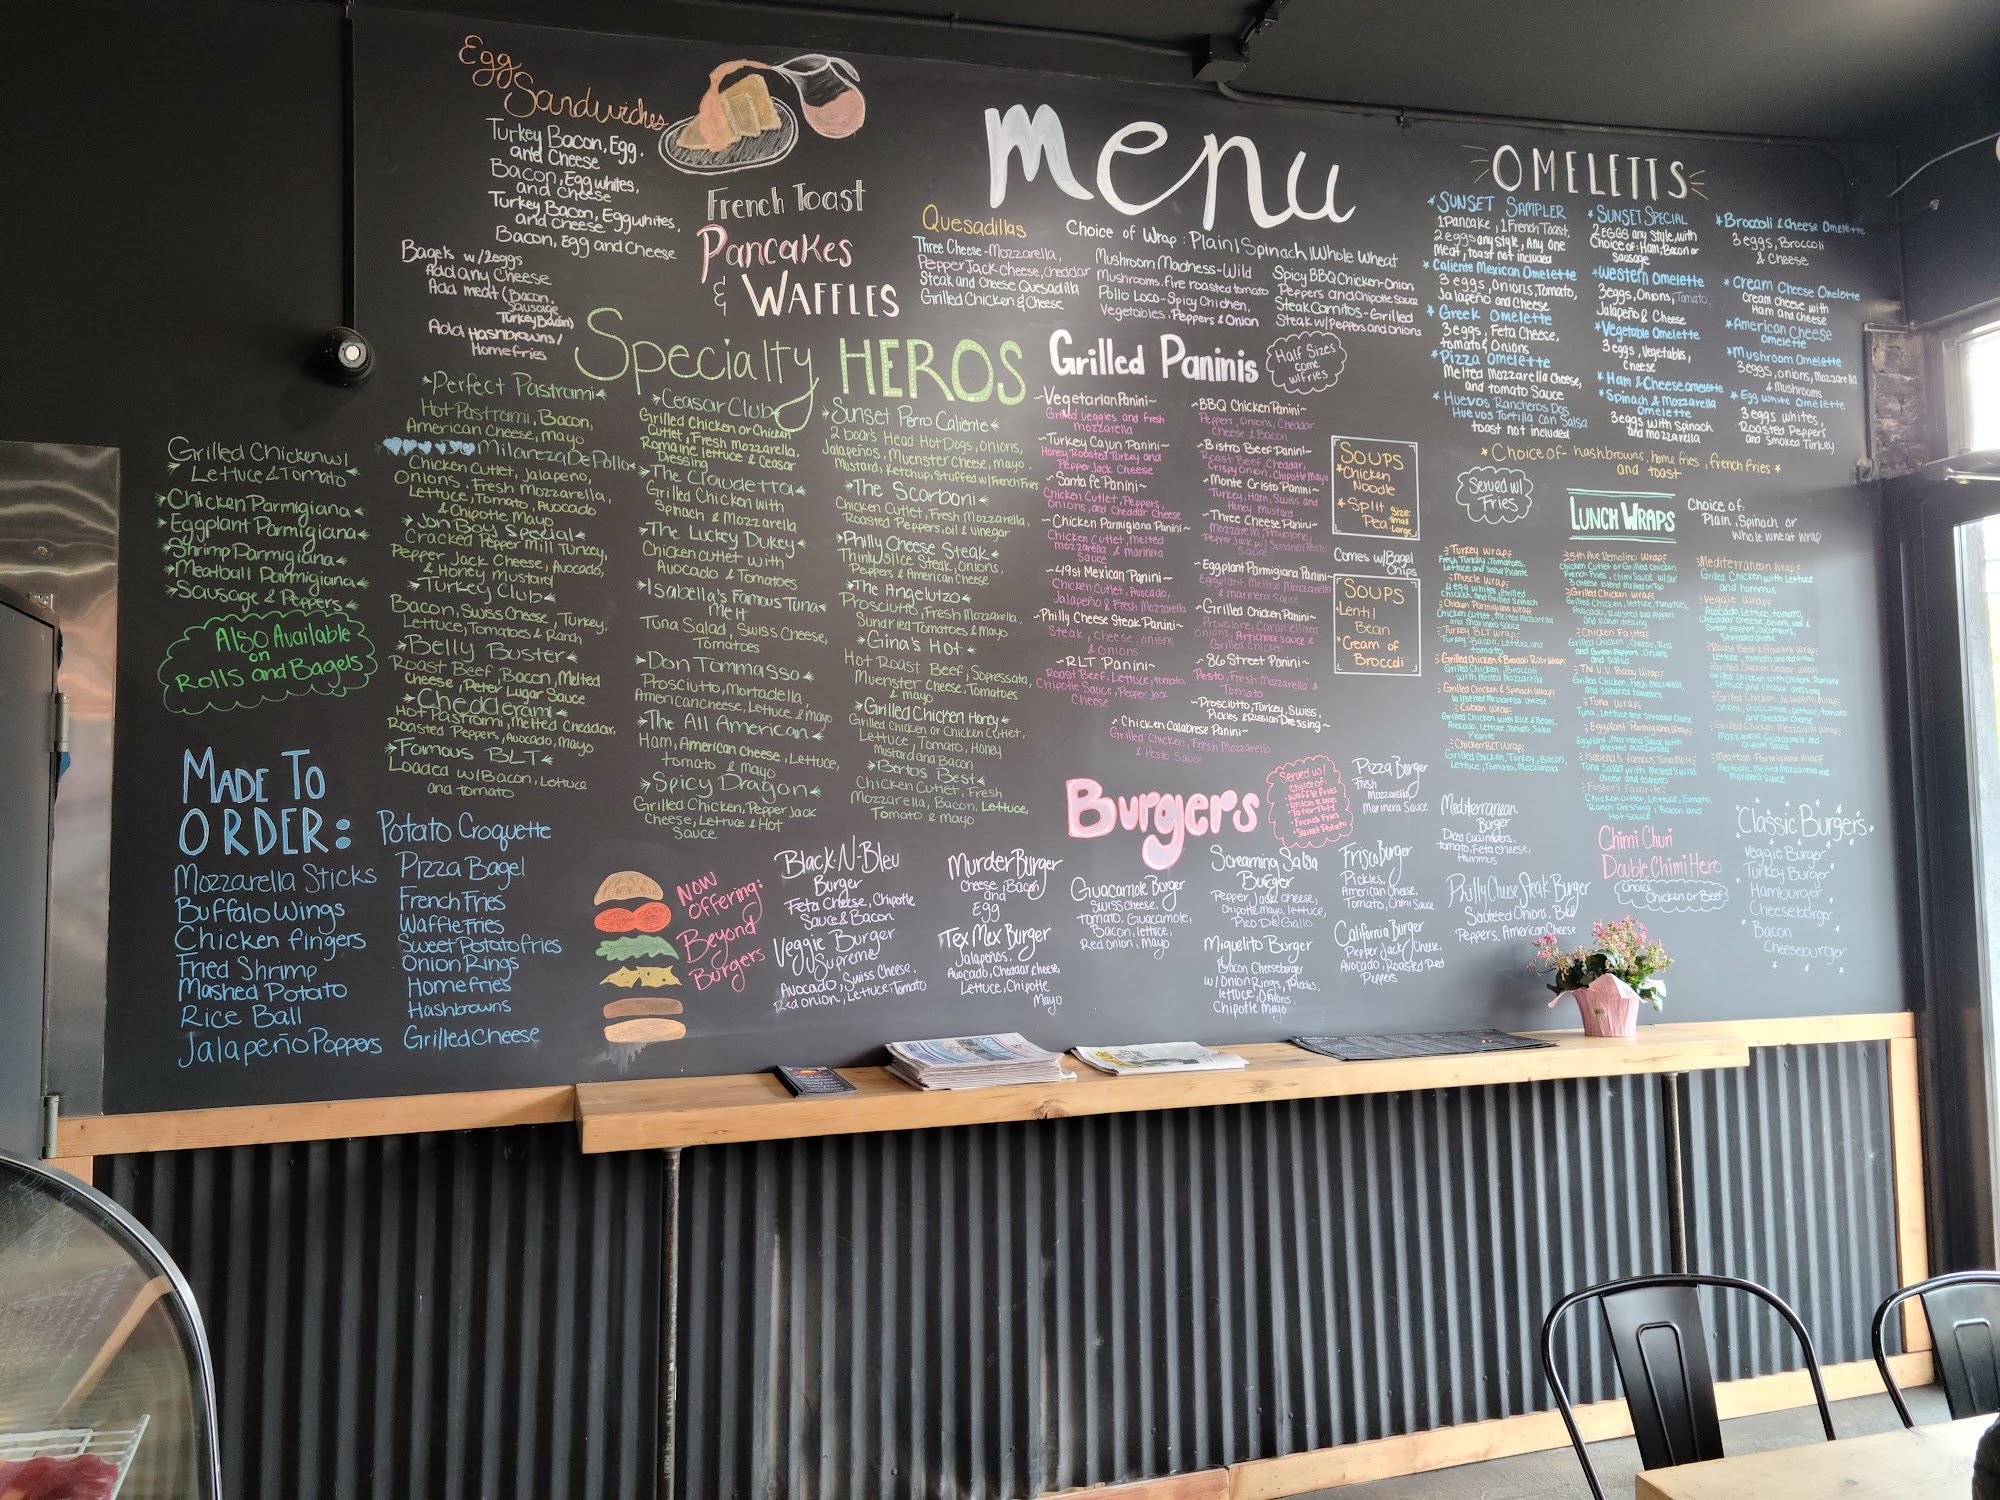 Egg
Sandwiches
Turkey Bacon, Egg,
and Cheese
Bacon, Egg whites,
and cheese
Turkey Bacon, Eggwhites,
and Cheese
Bacon, Egg and Cheese
Bagels w/2eggs
Add any Cheese
Add meat (Bacon,
Sausage,
Turkey Bacon)
Add Hashbrowns/
Homefries
French Toast
Pancakes
& Waffles
menu
Quesadillas
Choice of Wrap: Plain | Spinach | Whole Wheat
Three Cheese-Mozzarella,
Pepper Jack cheese, cheddar
Steak and Cheese Quesadilla
Grilled Chicken & Cheese
Mushroom Madness-Wild
Mushrooms, fire roasted tomato
Pollo Loco-Spicy Chicken,
Vegetables, Peppers & Onion
Spicy BBQ Chicken-Onion
Peppers and Chipotle Sauce
Steak Carnitos-Grilled
Steak w/Peppers and Onions
OMELETTS
*SUNSET SAMPLER
1Pancake, 1 French Toast,
2eggs any style, Any one
Meat, toast not included
*Caliente Mexican Omelette
3 eggs, Onions, Tomato,
Jalapeño and Cheese
*Greek Omelette
3eggs, Feta Cheese,
tomato & Onions
*Pizza Omelette
Melted Mozzarella Cheese,
and tomato Sauce
*Huevos Rancheros Dos
Huevos Tortilla Con Salsa
toast not included
*SUNSET SPECIAL
2 EGGS any style, with
Choice of: Ham, Bacon or
sausage
*Western Omelette
3eggs, Onions, Tomato,
Jalapeño & Cheese
*Vegetable Omelette
3eggs, Vegetables,
cheese
*Ham & Cheese omelette
*Spinach & Mozzarella
Omelette
3eggs with spinach
and mozzarella
*Broccoli & Cheese Omelette
3eggs, Broccoli
& Cheese
*Cream Cheese Omelette
Cream cheese with
Ham and Cheese
*American Cheese
omelette
*Mushroom Omelette
3eggs, onions, Mozzarella
& Mushrooms
*Egg White Omelette
3 eggs whites,
Roasted Peppers
and Smoked Turkey
*Choice of- hashbrowns, home fries, french fries*
and toast
Specialty HEROS
Grilled Chicken w/
Lettuce & Tomato
Chicken Parmigiana
Eggplant Parmigiana
Shrimp Parmigiana
Meatball Parmigiana
Sausage & Peppers
Also Available
on
Rolls and Bagels
Perfect Pastrami
Hot Pastrami, Bacon,
American Cheese, mayo
Milaneza De Pollo
Chicken Cutlet, Jalapeño,
Onions, Fresh Mozzarella,
Lettuce, Tomato, Avocado
& Chipotle Mayo
Jon Boy Special
Cracked Pepper Mill Turkey,
Pepper Jack Cheese, Avocado,
& Honey Mustard
Turkey Club
Bacon, Swiss Cheese, Turkey,
Lettuce, Tomatoes & Ranch
Belly Buster
Roast Beef, Bacon, Melted
Cheese, Peter Lugar Sauce
Chedderami
Hot Pastrami, Melted Cheddar,
Roasted Peppers, Avocado, Mayo
Famous BLT
Loaded w/Bacon, Lettuce
and tomato
Ceasar Club
Grilled Chicken or Chicken
Cutlet, Fresh Mozzarella,
Romaine lettuce & Ceasar
Dressing
The Claudetta
Grilled Chicken with
Spinach & Mozzarella
The Luckey Dukey
Chicken cutlet with
Avocado & Tomatoes
Isabella's Famous Tuna
Melt
Tuna Salad, Swiss Cheese,
Tomatoes
Don Tommasso
Prosciutto, Mortadella,
American cheese, Lettuce & Mayo
The All American
Ham, American Cheese, Lettuce,
tomato & Mayo
Spicy Dragon
Grilled Chicken, Pepper Jack
Cheese, Lettuce & Hot
Sauce
Sunset Perro Caliente
2 boar's Head HotDogs, onions,
Jalapeños, Muenster Cheese, mayo,
Mustard, Ketchup, Stuffed w/ French Fries
The Scarboni
Chicken Cutlet, Fresh Mozzarella,
Roasted Peppers, oil & vinegar
Philly Cheese Steak
Thinly slice Steak, onions,
Peppers & American Cheese
The Angelutzo
Prosciutto, Fresh Mozzarella,
Sundried Tomatoes & Mayo
Gina's Hot
Hot Roast Beef, Sopressata,
Muenster Cheese, Tomatoes
& mayo
Grilled Chicken Honey
Grilled Chicken or Chicken Cutlet,
Lettuce, Tomato, Honey
mustard and Bacon
Bertos Best
Chicken Cutlet, Fresh
Mozzarella, Bacon, Lettuce,
Tomato & mayo
Grilled Paninis
Half Sizes
come
w/fries
~Vegetarian Panini~
Grilled veggies and fresh
mozzarella
~Turkey Cajun Panini~
Honey Roasted Turkey and
Pepper Jack Cheese
~Santa Fe Panini~
Chicken Cutlet, Peppers,
Onions, and Cheddar Cheese
~Chicken Parmigiana Panini~
Chicken Cutlet, Melted
mozzarella & marinara
Sauce
~49st Mexican Panini~
Chicken Cutlet, Avocado,
Jalapeño & Fresh Mozzarella
~Philly Cheese Steak Panini~
Steak, cheese, onions
& Onions
~RLT Panini~
Roast Beef, Lettuce, tomato,
Chipotle Sauce, Pepper Jack
Cheese
~Chicken Calabrese Panini~
Grilled Chicken, Fresh Mozzarella
& Pesto Sauce
~BBQ Chicken Panini~
Peppers, Onions, Cheddar
Cheese & Bacon
~Bistro Beef Panini~
Roast Beef, Cheddar,
Crispy Onion, Chipotle Mayo
~Monte Cristo Panini~
Turkey, Ham, Swiss and
Honey Mustard
~Three Cheese Panini~
Mozzarella, Provolone,
Pepper Jack w/ Sundried Pesto
Sauce
~Eggplant Parmigiana Panini~
Eggplant, Melted Mozzarella
& marinara Sauce
~Grilled Chicken Panini~
Provolone, Caramelized
onions, Artichoke sauce &
Grilled Chicken
~86 Street Panini~
Pesto, Fresh Mozzarella &
Tomato
~Prosciutto, Turkey, Swiss,
Pickles & Russian Dressing~
SOUPS
*Chicken
Noodle
*Split
Pea
Size:
Small
Large
Comes w/Bagel
Chips
SOUPS
Lentil
Bean
*Cream of
Broccoli
Served w/
Fries
LUNCH WRAPS
Choice of:
Plain, Spinach or
Whole wheat wrap
Turkey Wrap
Fresh Turkey, Tomatoes,
Lettuce and Salsa Picante
Muscle Wrap
4 Egg Whites, Grilled
Chicken and Grilled Spinach
Chicken Parmigiana Wrap
Chicken Cutlet, Melted Mozzarella
and Marinara Sauce
Turkey BLT Wrap
Turkey, Bacon, Lettuce and
tomato
Grilled Chicken & Broccoli Rabe Wrap
Grilled Chicken, Broccoli
with Melted Mozzarella
Grilled Chicken & Spinach Wrap
w/melted Mozzarella cheese
Cuban Wrap
Grilled Chicken with Rice & Beans,
Avocado, Lettuce, Tomato, Salsa
Picante
Chicken BLT Wrap
Grilled Chicken, Turkey, Bacon,
Lettuce, Tomato, Mozzarella
5th Ave Remolino Wrap
Chicken Cutlet or Grilled Chicken
French Fries, Chimi Sauce w/our
3 cheese blend Melted on Top
Grilled Chicken Wrap
Grilled Chicken, lettuce, Tomatoes,
Avocado, Roasted red peppers
and Ranch dressing
Chicken Fajita
Grilled Chicken, Cheese, Red
and Green Peppers, Onions
and Salsa
The U.V. Baby Wrap
Grilled Chicken, Fresh Mozzarella,
and Sundried tomatoes
Tuna Wrap
Tuna, Lettuce and Shredded Cheese
Eggplant Parmigiana Wrap
Eggplant, Marinara Sauce with
melted mozzarella
Isabella's famous Tuna Melt
Tuna Salad with Melted Swiss
cheese and tomato
Foster's Favorite
Chicken Cutlet, Lettuce, Tomato,
Ranch Dressing, Bacon and
Hot Sauce
Mediterranean Wrap
Grilled Chicken with Lettuce
and hummus
Veggie Wrap
Avocado, Lettuce, tomato,
Cheddar cheese, onions, red &
Green peppers, cucumbers,
Shredded cheese
Roast Beef & Provolone Wrap
Lettuce, Tomato and red onion
Grilled Chicken Ceasar Wrap
Grilled Chicken with Croutons, Romaine
Lettuce and Ceasar dressing
Grilled Chicken Jalapeño Wrap
Onions, Guacamole, Lettuce, tomato
and Cheddar Cheese
Grilled Chicken Mozzarella Wrap
Mozzarella, Guacamole and
Chipotle Sauce
Meatball Parmigiana Wrap
Meatballs, Melted Mozzarella and
Marinara Sauce
Chimi Churi
Double Chimi Hero
Choice
Chicken or Beef
MADE TO
ORDER:
Mozzarella Sticks
Buffalo Wings
Chicken fingers
Fried Shrimp
Mashed Potato
Rice Ball
Jalapeño Poppers
Potato Croquette
Pizza Bagel
French Fries
Waffle Fries
Sweet Potato fries
Onion Rings
Homefries
Hashbrowns
Grilled Cheese
NOW
Offering:
Beyond
Burgers
Burgers
Served w/
choice of:
•Waffle fries
•Onion Rings
•Tater Tots
•French Fries
•Sweet Potato
Black-N-Bleu
Burger
Feta Cheese, Chipotle
Sauce & Bacon
Veggie Burger
Supreme
Avocado, Swiss Cheese,
Red onion, Lettuce, Tomato
Murder Burger
Cheese, Bacon
and
Egg
Tex Mex Burger
Jalapeños,
Avocado, Cheddar cheese,
Lettuce, Chipotle
Mayo
Guacamole Burger
Swiss Cheese,
tomato, Guacamole,
Bacon, lettuce,
Red Onion, Mayo
Screaming Salsa
Burger
Pepper Jack cheese,
Chipotle Mayo, lettuce,
Pico De Gallo
Miguelito Burger
Bacon Cheeseburger
w/ Onion Rings, Pickles,
lettuce, Onions,
Chipotle Mayo
Pizza Burger
Fresh
Mozzarella,
Marinara Sauce
Frisco Burger
Pickles,
American Cheese,
Tomato, Chimi Sauce
California Burger
Pepper Jack Cheese,
Avocado, Roasted Red
Peppers
Mediterranean
Burger
Diced cucumbers,
tomato, Feta cheese,
Hummus
Philly Cheese Steak Burger
Sauteed Onions, Bell
Peppers, American Cheese
Classic Burgers
Veggie Burger
Turkey Burger
Hamburger
Cheeseburger
Bacon
Cheeseburger